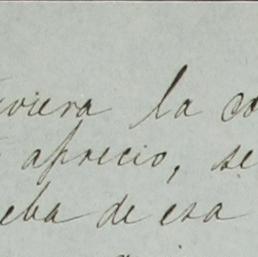 viera la co
aprecio, se
eba de esa